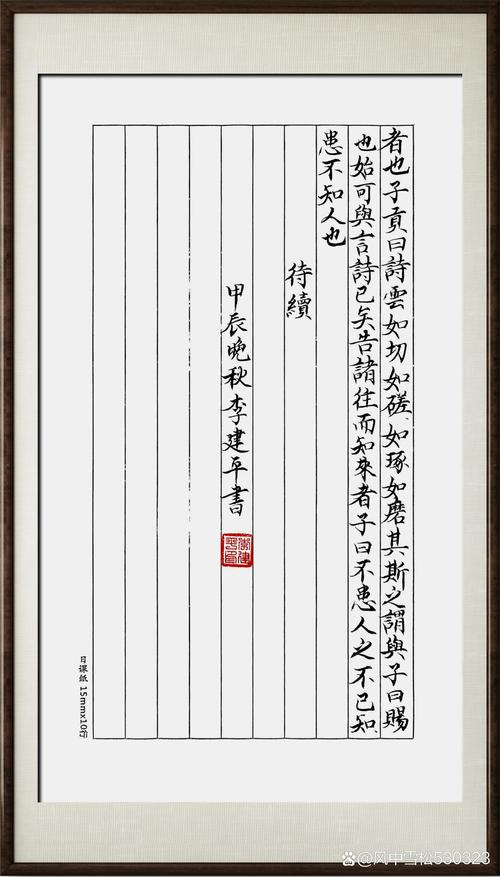 者也子貢曰詩雲如切如磋如琢如磨其斯之謂與子曰賜
也始可與言詩已矣告諸往而知來者子曰不患人之不已知
患不知人也
待續
甲辰晚秋李建平書
日课紙 15mmx10行
@风中雪松530323